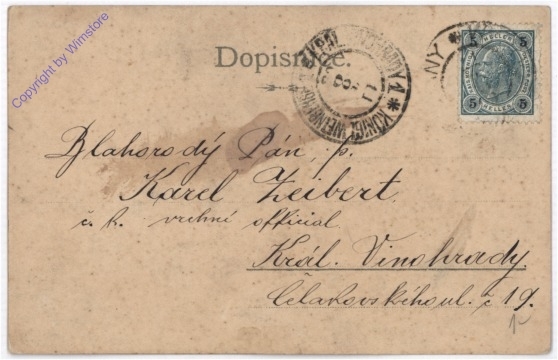 Copyright by Wimstore
Dopisnice.
5 HELLER 5
5 HELLER 5
Blahorodý Pán, p.
Karel Zeibert
c. k. vrchní official
Král. Vinohrady
Čelakovského ul. č 19.